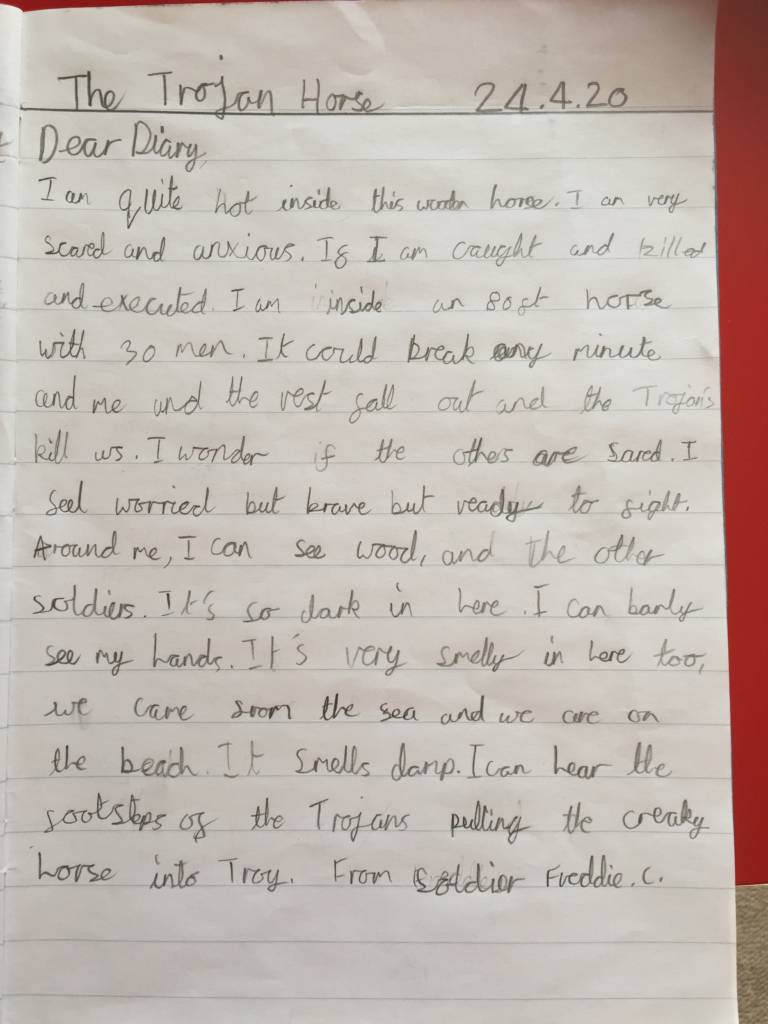 The Trojan Horse 24.4.20
Dear Diary,
I am quite hot inside this wooden horse. I am very
scared and anxious. If I am caught and killed
and executed. I am inside an 80ft horse
with 30 men. It could break any minute
and me and the rest fall out and the Trojan's
kill us. I wonder if the others are sared. I
feel worried but brave but ready to fight.
Around me, I can see wood, and the other
soldiers. It's so dark in here. I can barly
see my hands. It's very smelly in here too,
we came from the sea and we are on
the beach. It smells damp. I can hear the
footsteps of the Trojans pulling the creaky
horse into Troy. From soldier Freddie. C.